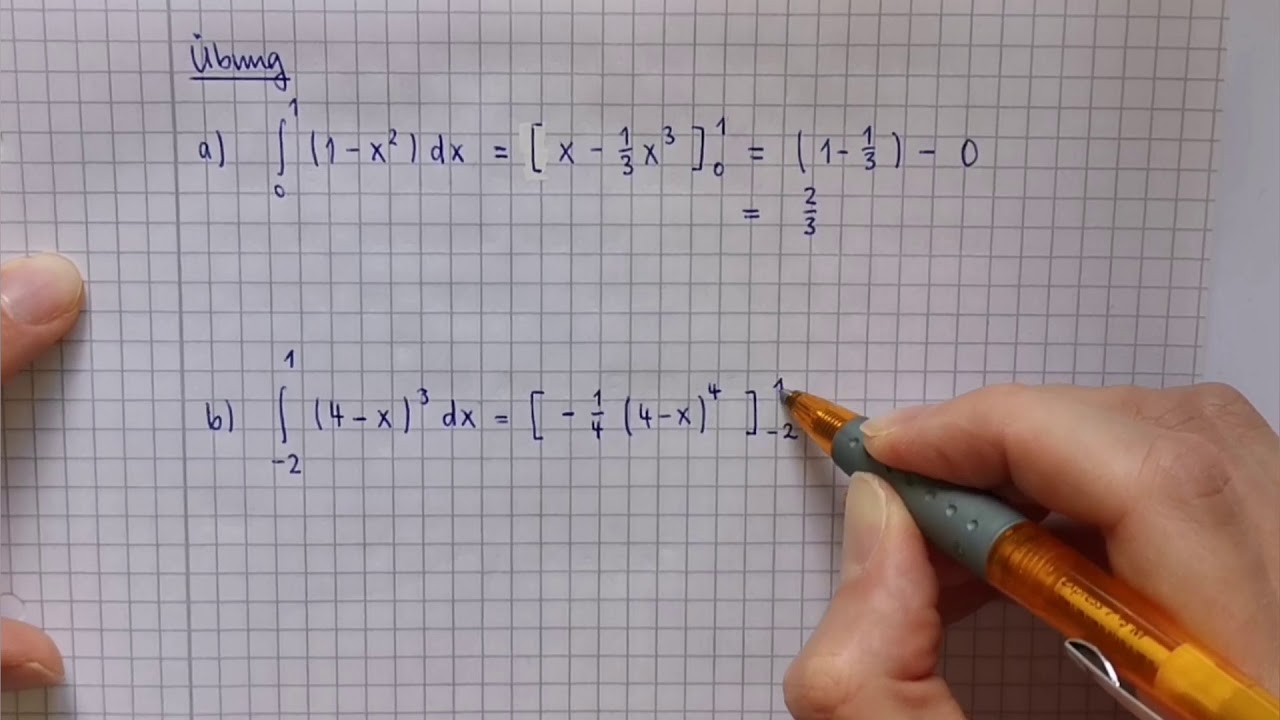 Übung
a) ∫₀¹ (1 − x²) dx = [ x − 1/3 x³ ]₀¹ = (1 − 1/3) − 0
= 2/3
b) ∫₋₂¹ (4 − x)³ dx = [ − 1/4 (4 − x)⁴ ]₋₂¹